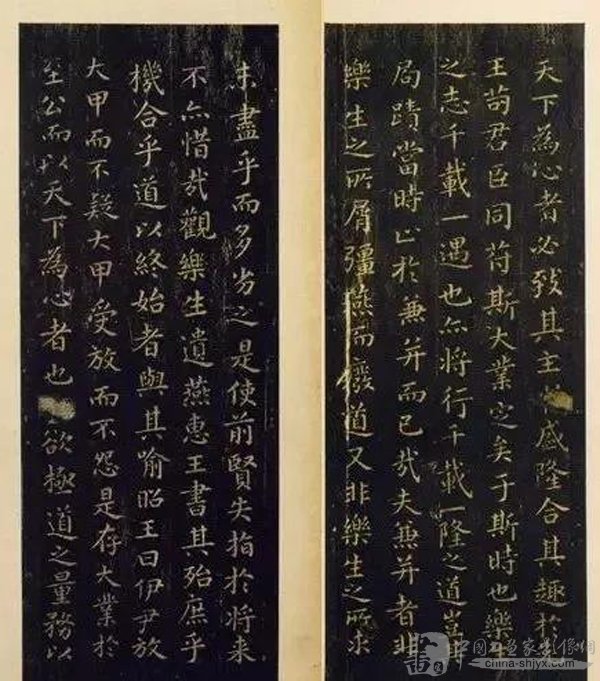 天下為心者必致其主盛隆合其趣於
王苟君臣同苻斯大業定矣于斯時也樂
之志千載一遇也亦將行千載一隆之道豈
局蹟當時止於兼并而已哉夫兼并者非
樂生之所屑彊燕而廢道又非樂生之所求
未盡乎而多劣之是使前賢失指於將來
不亦惜哉觀樂生遺燕惠王書其殆庶乎
機合乎道以終始者與其喻昭王曰伊尹放
大甲而不疑大甲受放而不怨是存大業於
至公而以天下為心者也欲極道之量務以
中国书画家影像网
china-shjyx.com